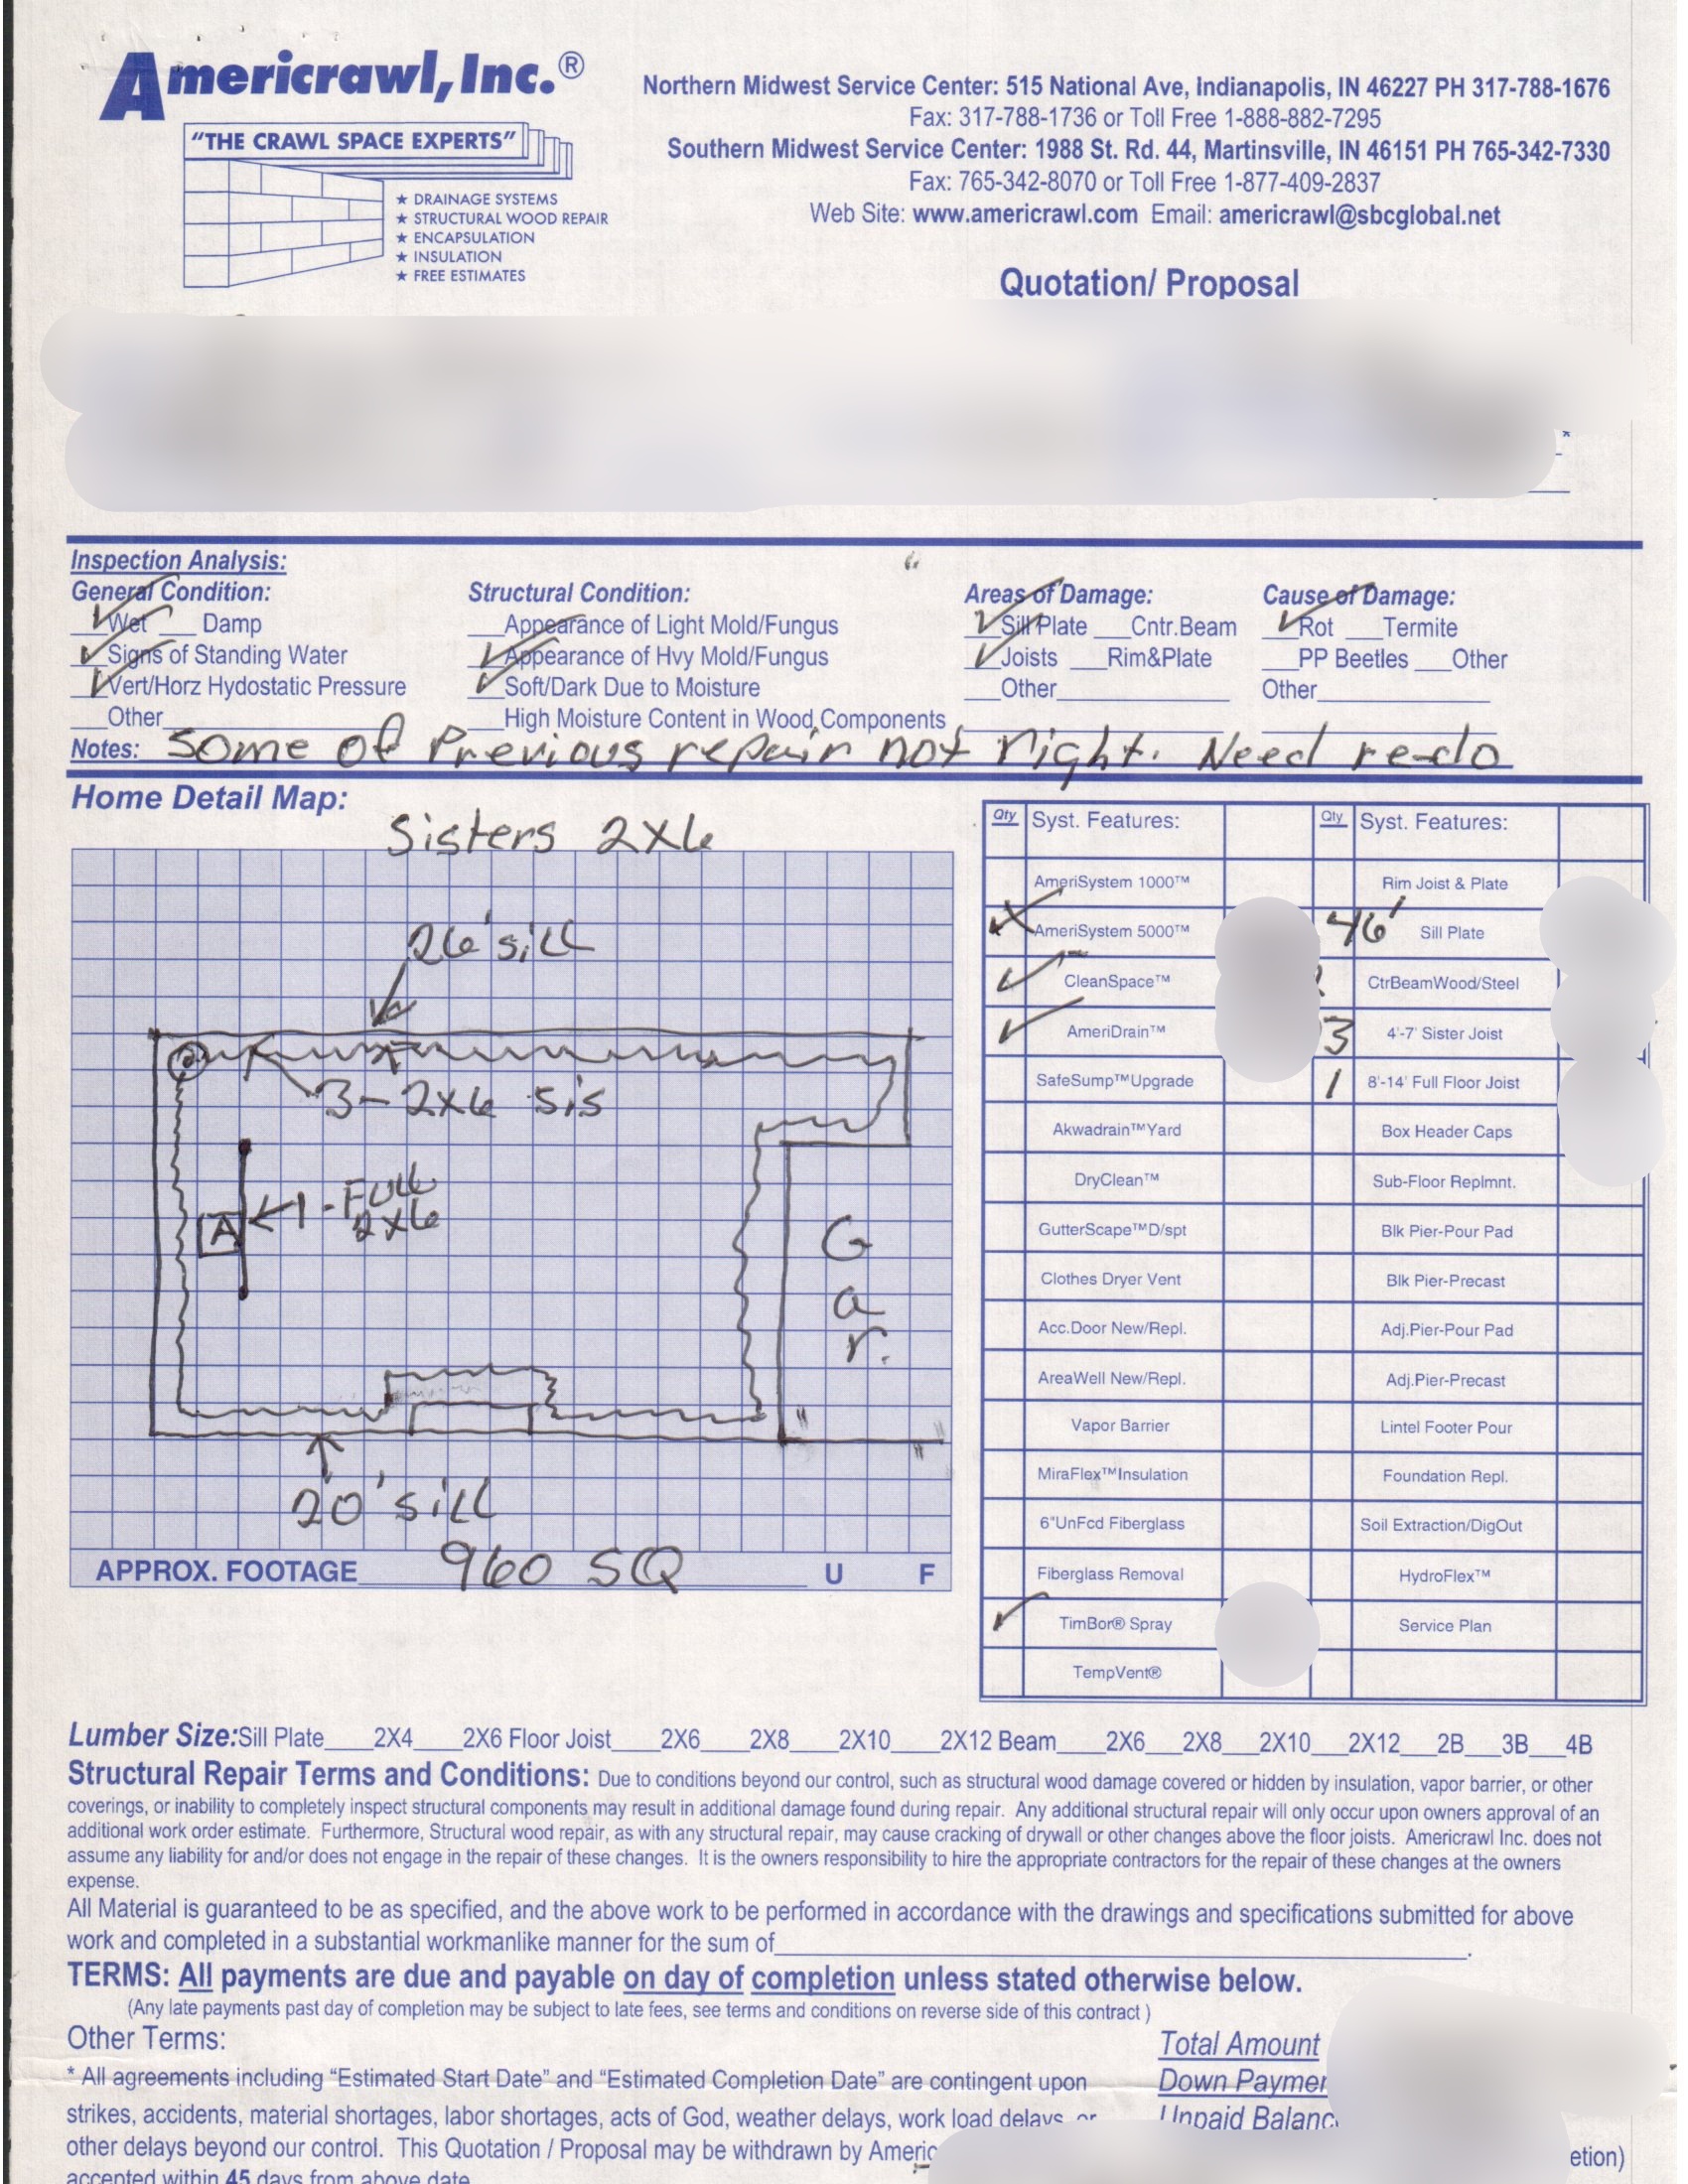 Americrawl, Inc.®
"THE CRAWL SPACE EXPERTS"
★ DRAINAGE SYSTEMS
★ STRUCTURAL WOOD REPAIR
★ ENCAPSULATION
★ INSULATION
★ FREE ESTIMATES
Northern Midwest Service Center: 515 National Ave, Indianapolis, IN 46227 PH 317-788-1676
Fax: 317-788-1736 or Toll Free 1-888-882-7295
Southern Midwest Service Center: 1988 St. Rd. 44, Martinsville, IN 46151 PH 765-342-7330
Fax: 765-342-8070 or Toll Free 1-877-409-2837
Web Site: www.americrawl.com Email: americrawl@sbcglobal.net
Quotation/ Proposal
Inspection Analysis:
General Condition: Structural Condition: Areas of Damage: Cause of Damage:
✓ Wet ___ Damp ___ Appearance of Light Mold/Fungus ✓ Sill Plate ___ Cntr.Beam ✓ Rot ___ Termite
✓ Signs of Standing Water ✓ Appearance of Hvy Mold/Fungus ✓ Joists ___ Rim&Plate ___ PP Beetles ___ Other
✓ Vert/Horz Hydostatic Pressure ✓ Soft/Dark Due to Moisture ___ Other Other
___ Other ___ High Moisture Content in Wood Components
Notes: Some of Previous repair not right. Need re-do
Home Detail Map:
Sisters 2x6
26' sill
3 - 2x6 sis
1 - Full
2x6
A
Gar.
20' sill
APPROX. FOOTAGE 960 SQ U F
Qty Syst. Features: Qty Syst. Features:
AmeriSystem 1000™ Rim Joist & Plate
AmeriSystem 5000™ 46' Sill Plate
✓ CleanSpace™ CtrBeamWood/Steel
✓ AmeriDrain™ 3 4'-7' Sister Joist
SafeSump™Upgrade 1 8'-14' Full Floor Joist
Akwadrain™Yard Box Header Caps
DryClean™ Sub-Floor Replmnt.
GutterScape™D/spt Blk Pier-Pour Pad
Clothes Dryer Vent Blk Pier-Precast
Acc.Door New/Repl. Adj.Pier-Pour Pad
AreaWell New/Repl. Adj.Pier-Precast
Vapor Barrier Lintel Footer Pour
MiraFlex™Insulation Foundation Repl.
6"UnFcd Fiberglass Soil Extraction/DigOut
Fiberglass Removal HydroFlex™
✓ TimBor® Spray Service Plan
TempVent®
Lumber Size: Sill Plate____2X4____2X6 Floor Joist____2X6____2X8____2X10____2X12 Beam____2X6___2X8___2X10___2X12___2B___3B___4B
Structural Repair Terms and Conditions: Due to conditions beyond our control, such as structural wood damage covered or hidden by insulation, vapor barrier, or other
coverings, or inability to completely inspect structural components may result in additional damage found during repair. Any additional structural repair will only occur upon owners approval of an
additional work order estimate. Furthermore, Structural wood repair, as with any structural repair, may cause cracking of drywall or other changes above the floor joists. Americrawl Inc. does not
assume any liability for and/or does not engage in the repair of these changes. It is the owners responsibility to hire the appropriate contractors for the repair of these changes at the owners
expense.
All Material is guaranteed to be as specified, and the above work to be performed in accordance with the drawings and specifications submitted for above
work and completed in a substantial workmanlike manner for the sum of
TERMS: All payments are due and payable on day of completion unless stated otherwise below.
(Any late payments past day of completion may be subject to late fees, see terms and conditions on reverse side of this contract )
Other Terms: Total Amount
* All agreements including "Estimated Start Date" and "Estimated Completion Date" are contingent upon Down Paymen
strikes, accidents, material shortages, labor shortages, acts of God, weather delays, work load delays, or Unpaid Balanc
other delays beyond our control. This Quotation / Proposal may be withdrawn by Americ etion)
accepted within 45 days from above date